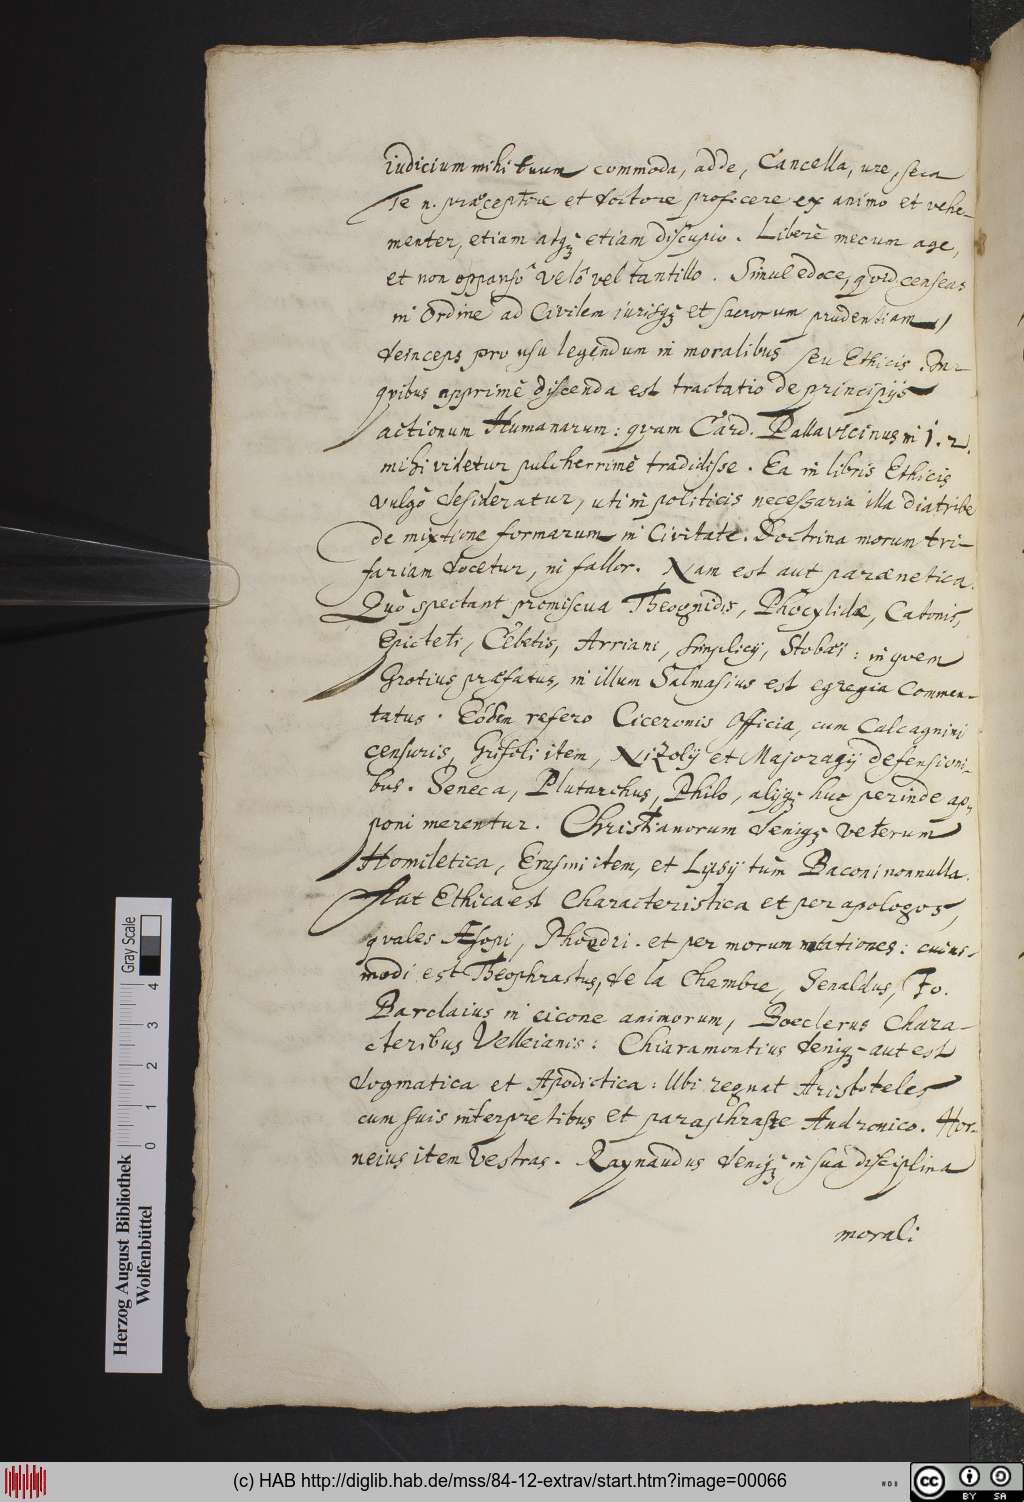 Iudicium mihi tuum commoda, adde, Cancella, ure, seca
Te n. præceptore et doctore proficere ex animo et vehe-
menter, etiam atq; etiam discupio. Liberè mecum age,
et non oppansô velô vel tantillo. Simul edoce, quid censeas
in Ordine ad Civilem iurisq; et sacrorum prudentiam,
deinceps pro usu legendum in moralibus seu Ethicis. In
quibus apprimè discenda est tractatio de principijs
actionum Humanarum: quam Card. Pallavicinus in 1. 2.
mihi videtur pulcherrimè tradidisse. Ea in libris Ethicis
vulgò desideratur, uti in politicis necessaria illa diatribe
de mixtione formarum in Civitate. Doctrina morum tri-
fariam docetur, ni fallor. Nam est aut parænetica.
Quò spectant promiscua Theognidis, Phocylidæ, Catonis,
Epicteti, Cebetis, Arriani, Simplicij, Stobæi: in quem
Grotius præfatus, in illum Salmasius est egregia commen-
tatus. Eodem refero Ciceronis Officia, cum Calcagnini
censuris, Grifoli item, Nizolij et Majoragij defensioni-
bus. Seneca, Plutarchus, Philo, alijq; huc perinde ap-
poni merentur. Christianorum deniq; veterum
Homiletica, Erasmi item, et Lipsij tùm Baconi nonnulla.
Aut Ethica est Characteristica et per apologos,
quales Æsopi, Phædri. et per morum notationes: cuius-
modi est Theophrastus, de la Chambre, Senaldus, Jo.
Barclaius in eicone animorum, Boeclerus Chara-
cteribus Velleianis: Chiaramontius deniq; aut est
dogmatica et Apodictica: Ubi regnat Aristoteles
cum suis interpretibus et paraphraste Andronico. Hor-
neius item Vestras. Raynaudus deniq; in sua disciplina
morali
Herzog August Bibliothek
Wolfenbüttel
Gray Scale
0 1 2 3 4
(c) HAB http://diglib.hab.de/mss/84-12-extrav/start.htm?image=00066
cc BY SA